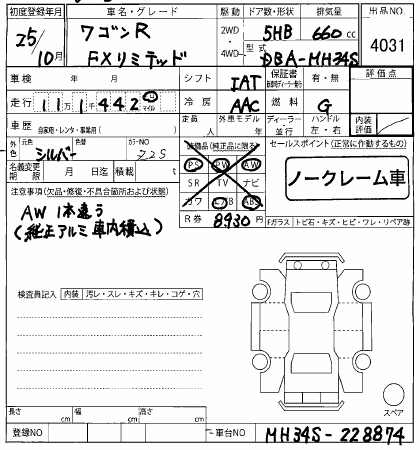 初度登録年月 車名・グレード 駆動 ドア数・形状 排気量 出品NO.
25/10月 ワゴンR FXリミテッド 2WD 4WD 5HB 660cc 4031
型式 DBA-MH34S
車検 年 月 シフト IAT 保証書 有・無 評価点
走行 11万1千442 km マイル 冷房 AAC 燃料 G
車歴 自家用・レンタ・事業用( ) 定員 人 外車モデル 年 ディーラー 並行 ハンドル 左・右 内装評価
外色 元色 シルバー 色替 カラーNO Z2S 装備品(純正品に限る) セールスポイント(正常に動作するもの)
PS PW AW
名義変更期限 月 日迄 積載 t SR TV ナビ ノークレーム車
注意事項(欠品・修復・不具合箇所および状態) カワ エアB ABS
AW 1本違う R券 8930円 Fガラス トビ石・キズ・ヒビ・ワレ・リペア跡
(純正アルミ車内積込)
検査員記入 内装 汚レ・スレ・キズ・キレ・コゲ・穴
スペア
長さ cm 幅 cm 高さ cm
登録NO 車台NO MH34S-228874